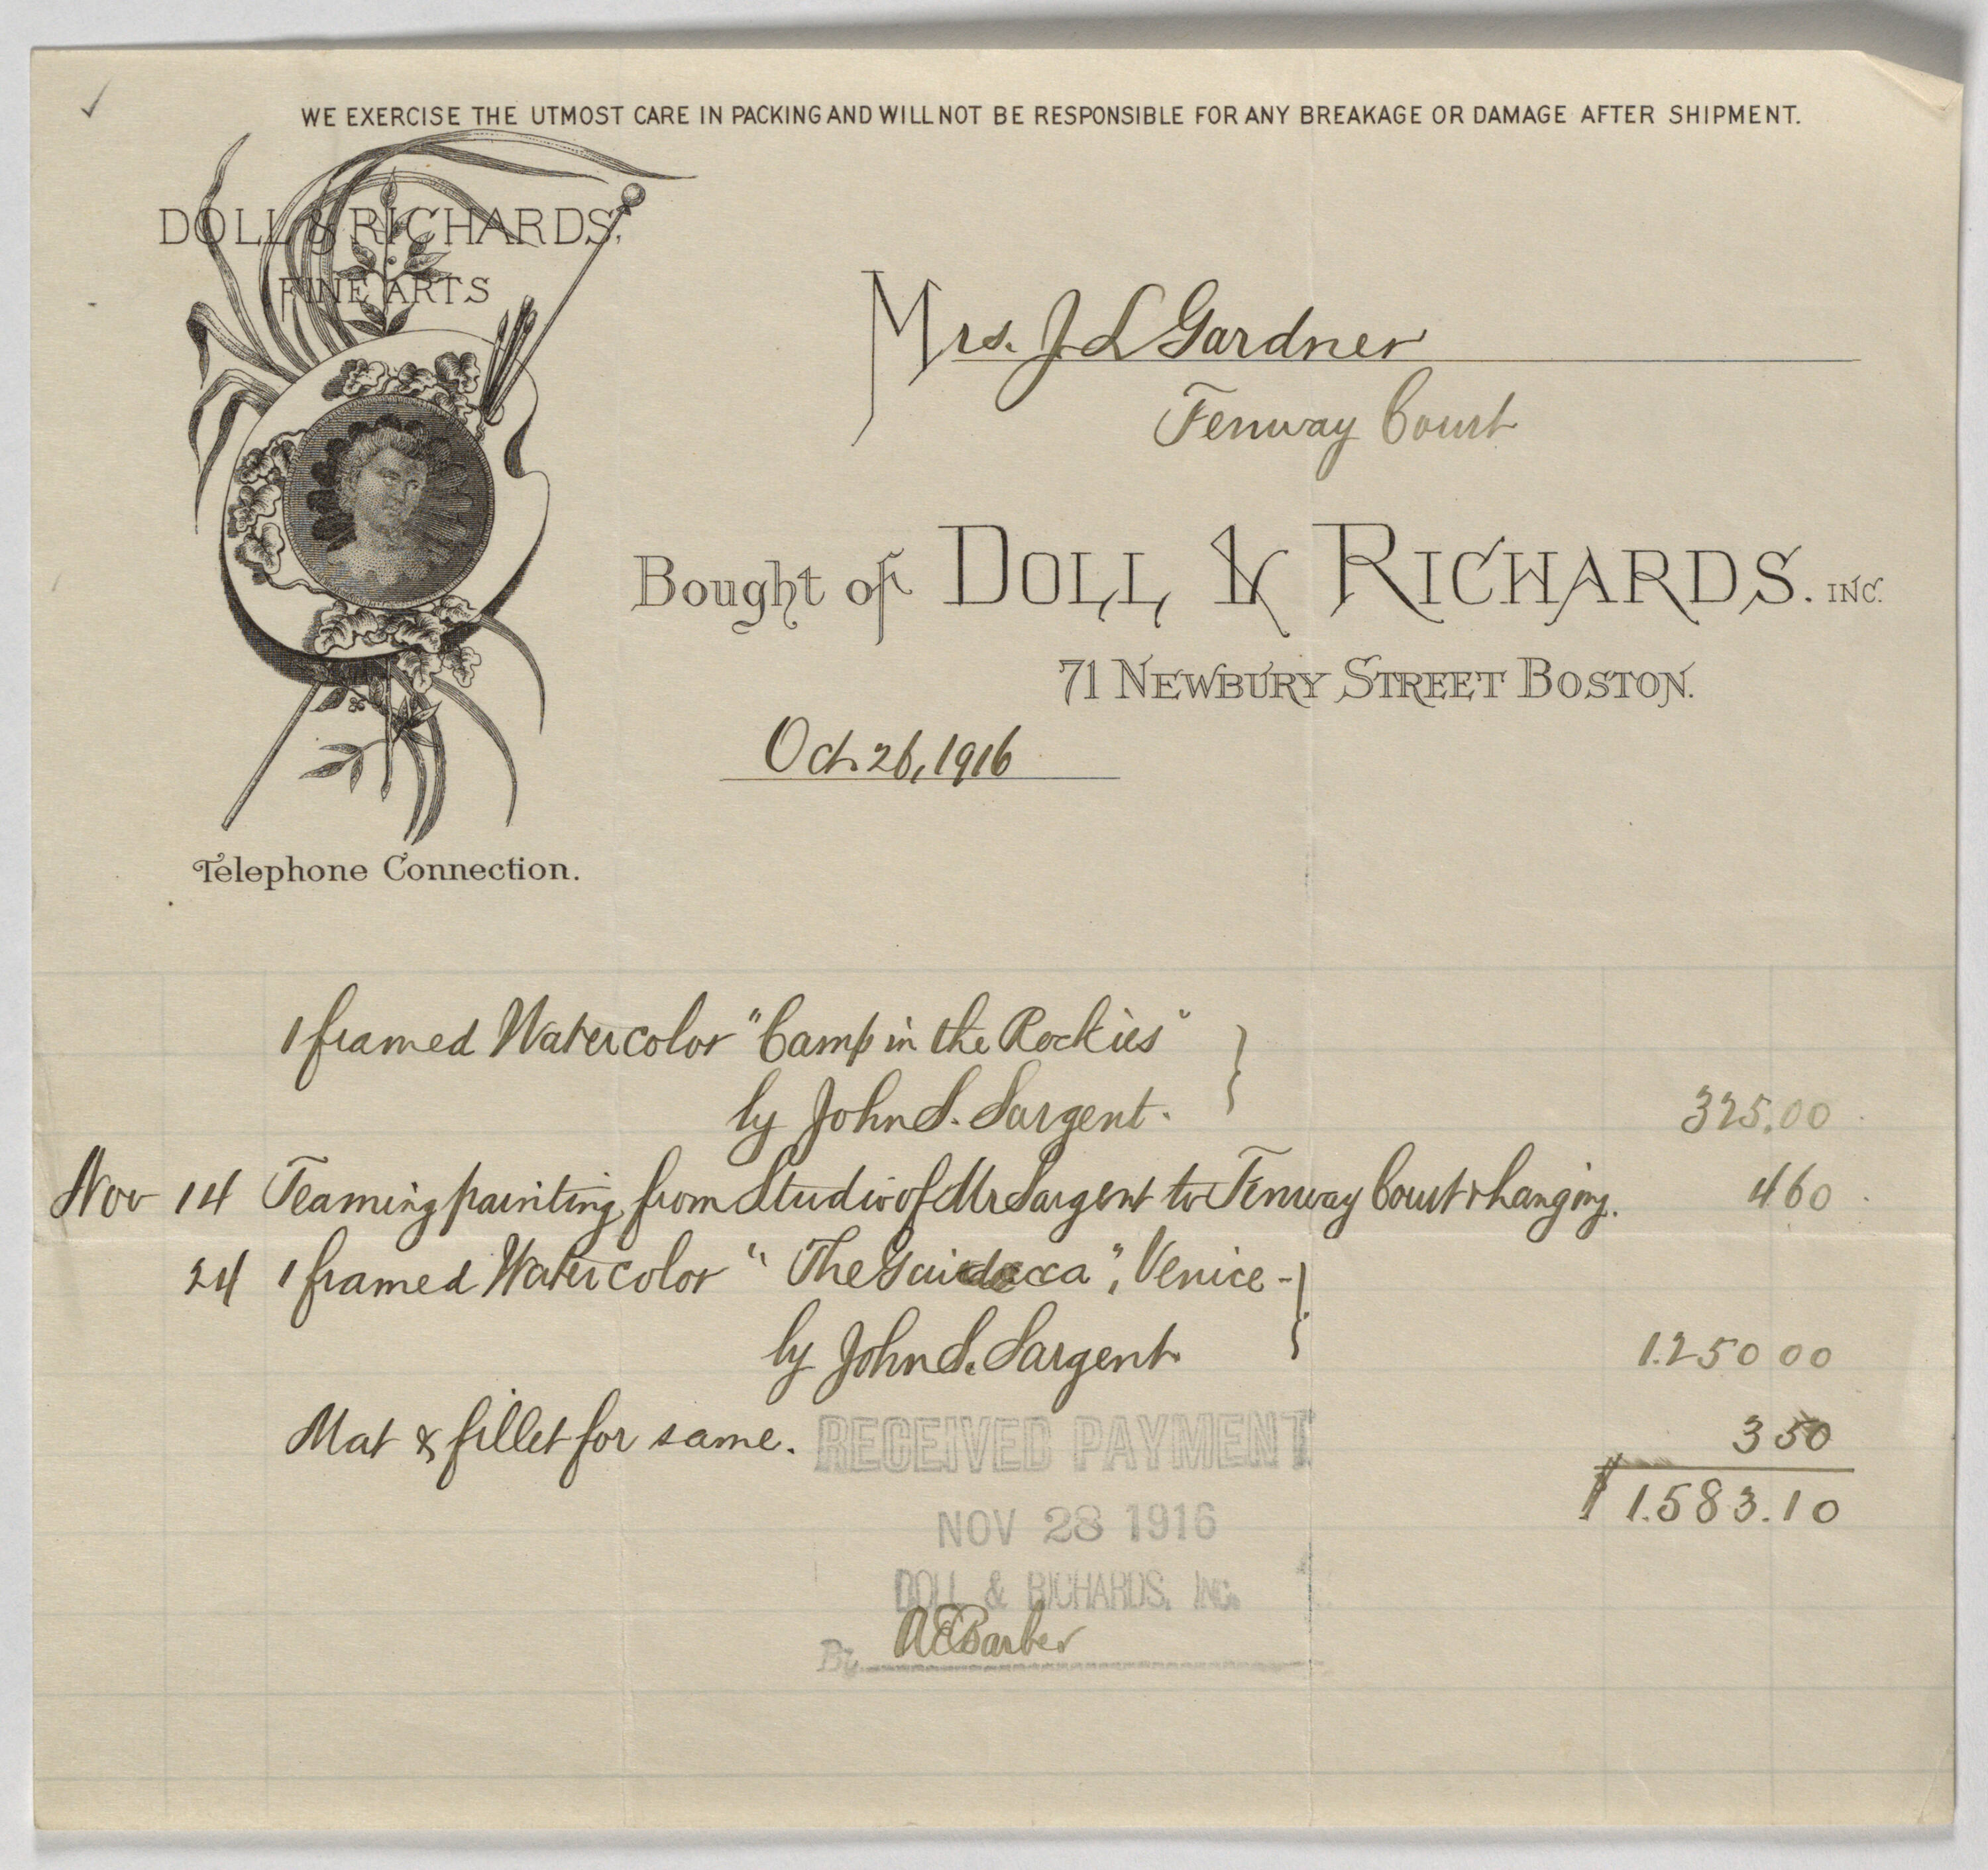 WE EXERCISE THE UTMOST CARE IN PACKING AND WILL NOT BE RESPONSIBLE FOR ANY BREAKAGE OR DAMAGE AFTER SHIPMENT.
DOLL & RICHARDS,
FINE ARTS
Mrs. J. L Gardner
Fenway Court
Bought of DOLL & RICHARDS. INC.
71 NEWBURY STREET BOSTON.
Oct. 26, 1916
Telephone Connection.
1 framed Watercolor "Camp in the Rockies"
by John S. Sargent. 325.00
Nov 14 Teaming painting from Studio of Mr Sargent to Fenway Court & hanging. 4 60
24 1 framed Watercolor " The ", Venice -
by John S. Sargent. 1.250 00
Mat & fillet for same. 3 50
$ 1.583.10
RECEIVED PAYMENT
NOV 28 1916
DOLL & RICHARDS, INC.
By A E Barber